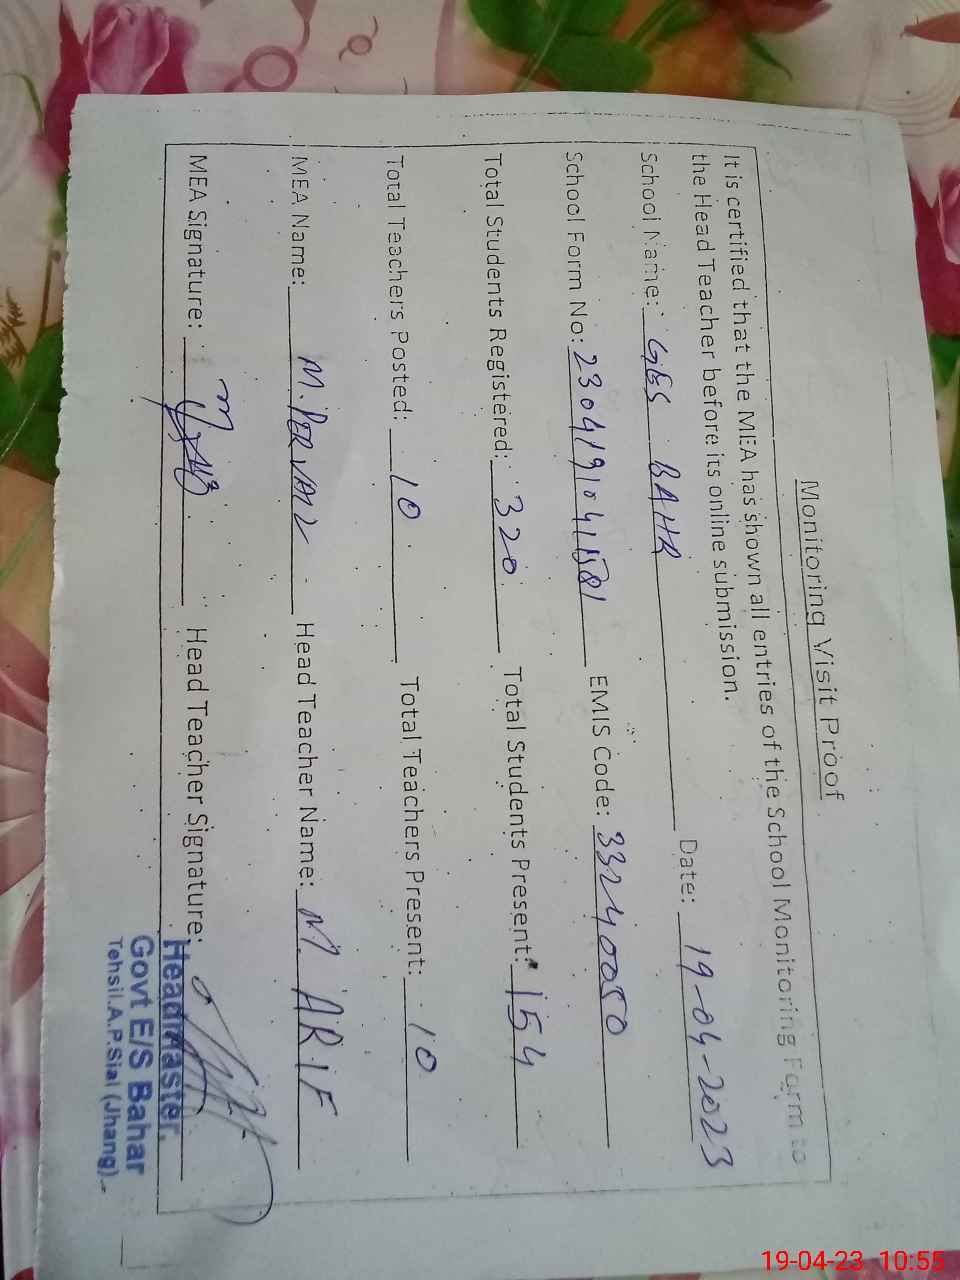 Monitoring Visit Proof
It is certified that the MEA has shown all entries of the School Monitoring Form to
the Head Teacher before its online submission.
School Name: GES BAHR Date: 19-04-2023
School Form No: EMIS Code: 33240050
Total Students Registered: 320 Total Students Present: 154
Total Teachers Posted: 10 Total Teachers Present: 10
MEA Name: M. PERVAIZ Head Teacher Name: M. ARIF
MEA Signature: Head Teacher Signature:
Headmaster.
Govt E/S Bahar
Tehsil.A.P.Sial (Jhang).-
19-04-23 10:55